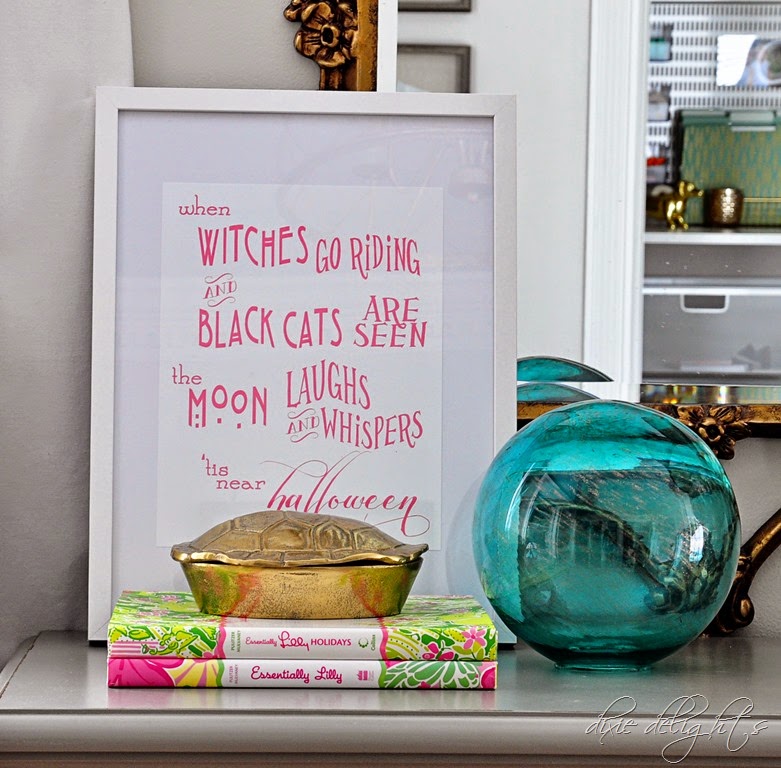 when
WITCHES GO RIDING
AND
BLACK CATS ARE SEEN
the MOON LAUGHS
AND WHISPERS
'tis near halloween
Essentially Lilly HOLIDAYS
Collins
Essentially Lilly
dixie delights